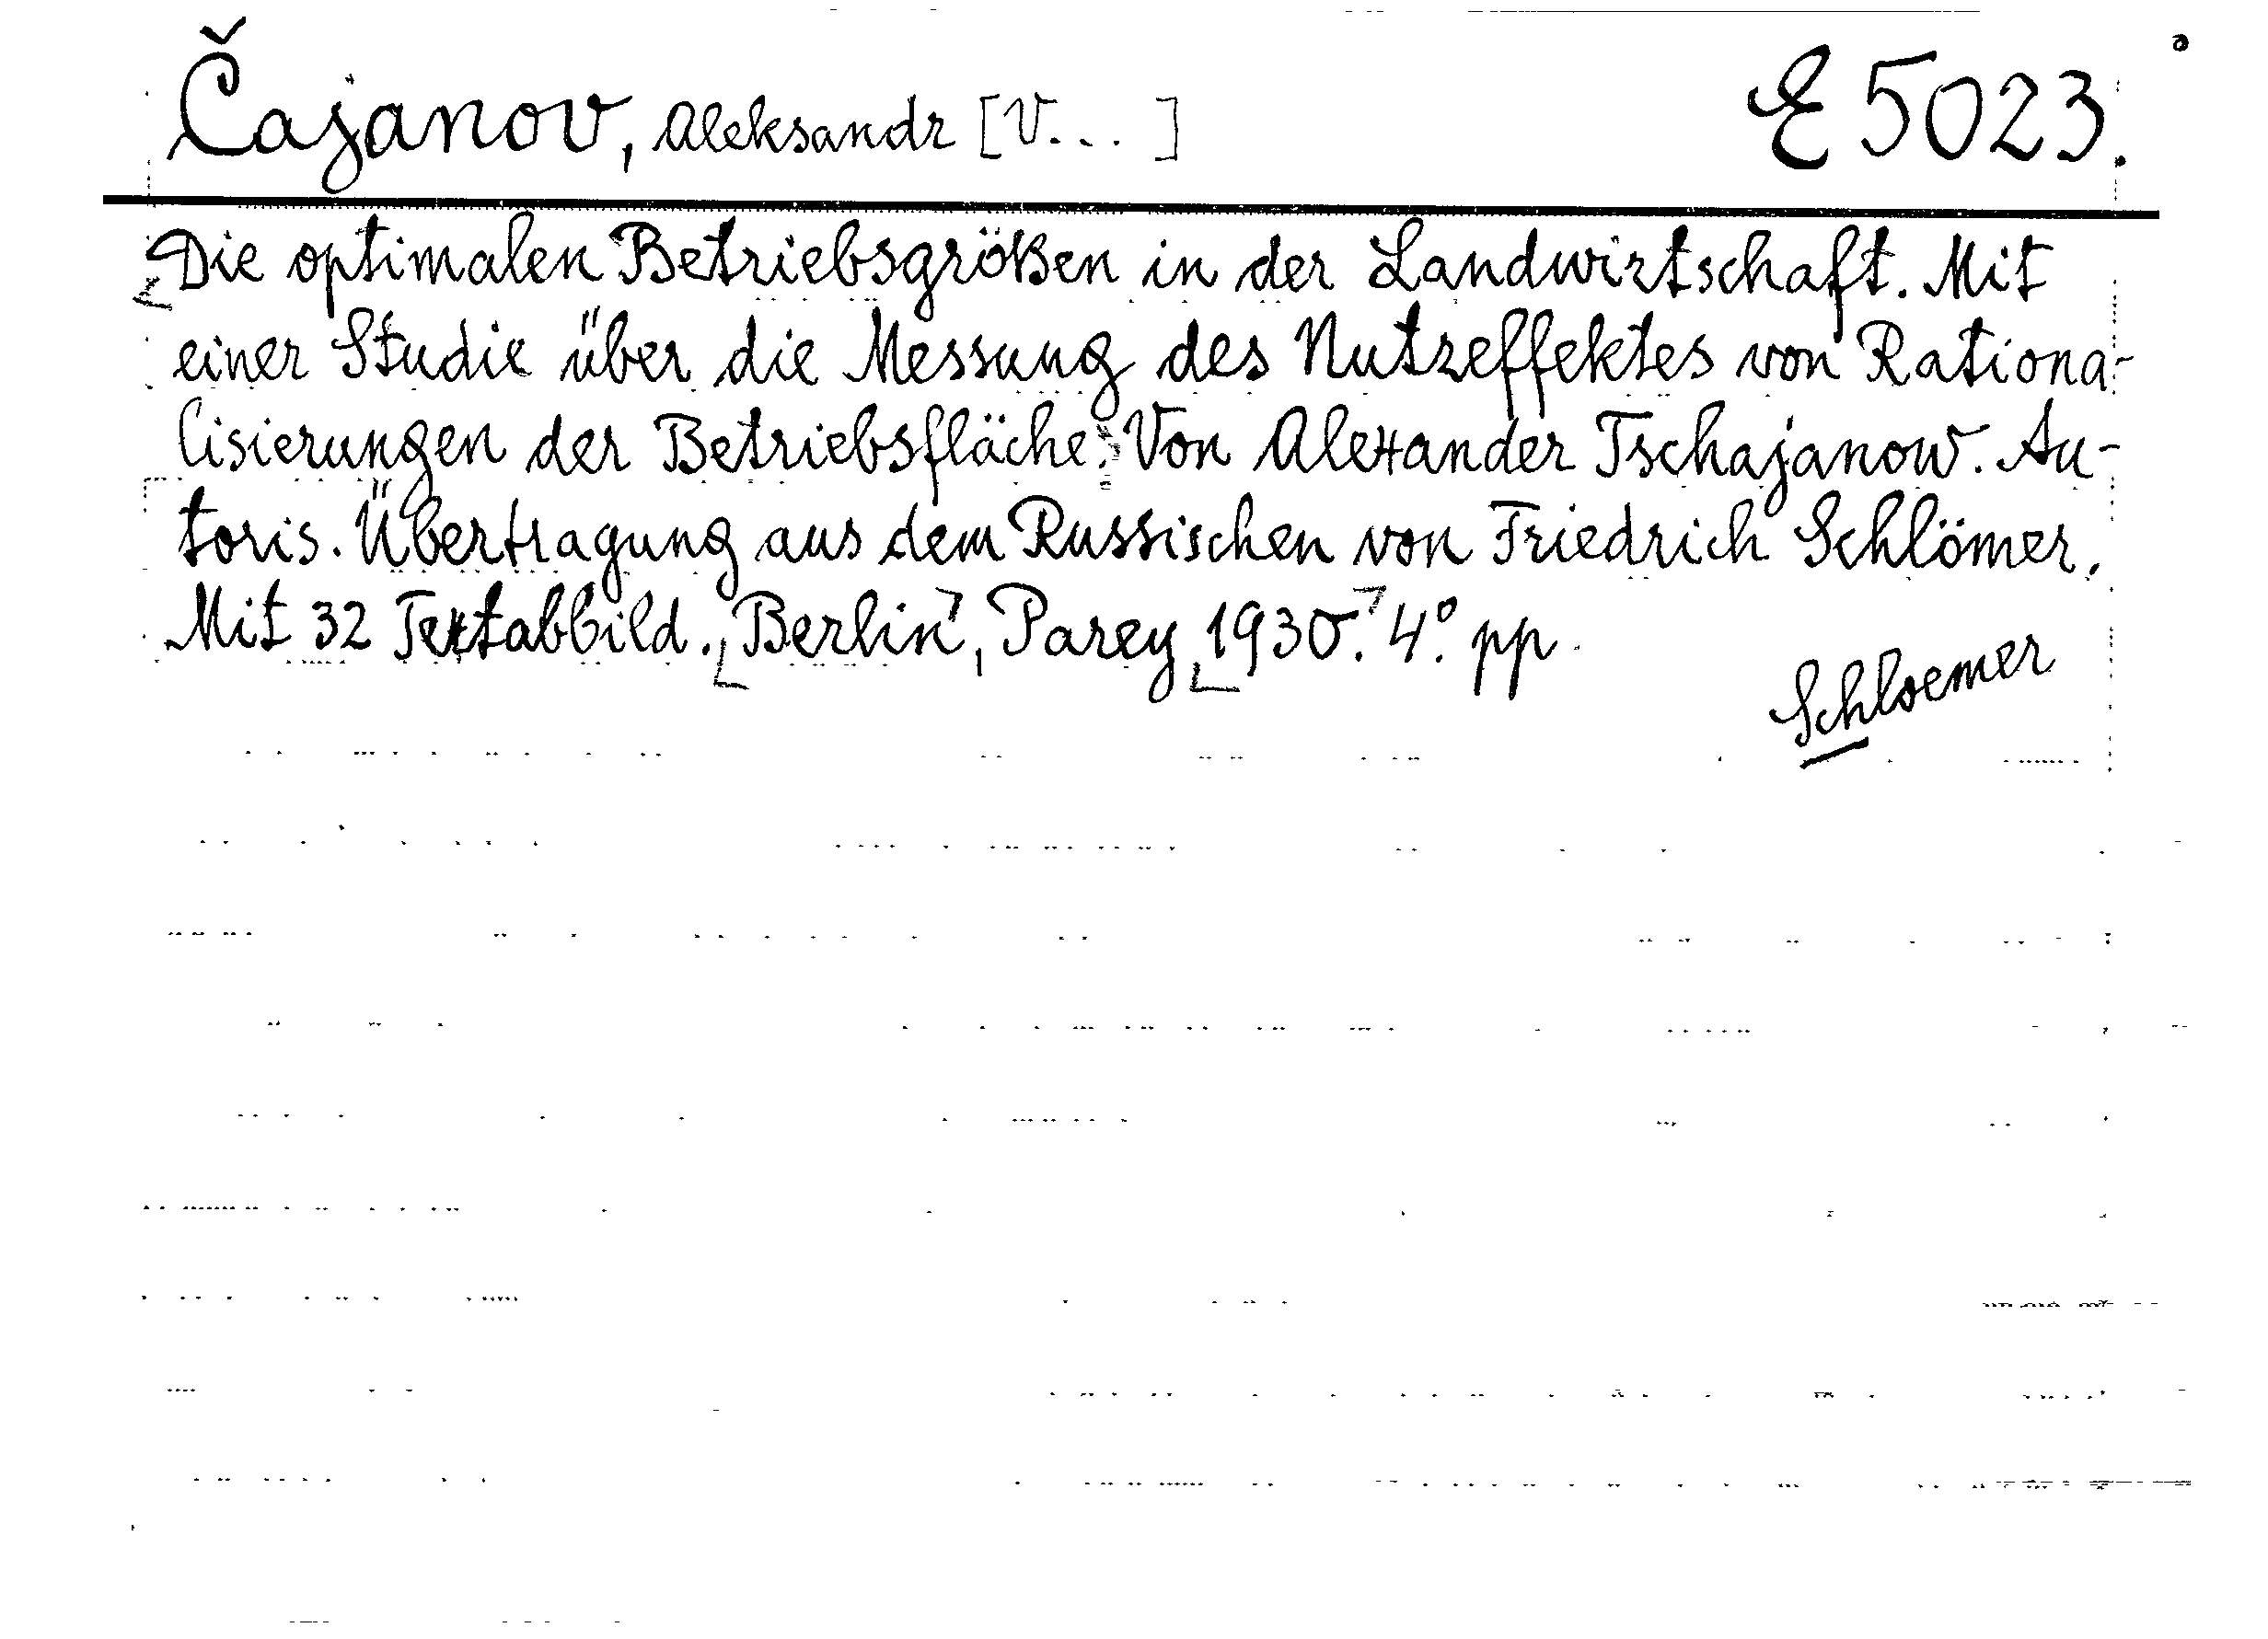 Čajanov, Aleksandr [V...] E 5023.
Die optimalen Betriebsgrößen in der Landwirtschaft. Mit
einer Studie über die Messung des Nutzeffektes von Rationa-
lisierungen der Betriebsfläche. Von Alexander Tschajanow. Au-
toris. Übertragung aus dem Russischen von Friedrich Schlömer.
Mit 32 Textabbild. Berlin, Parey 1930. 4°. pp.
Schloemer